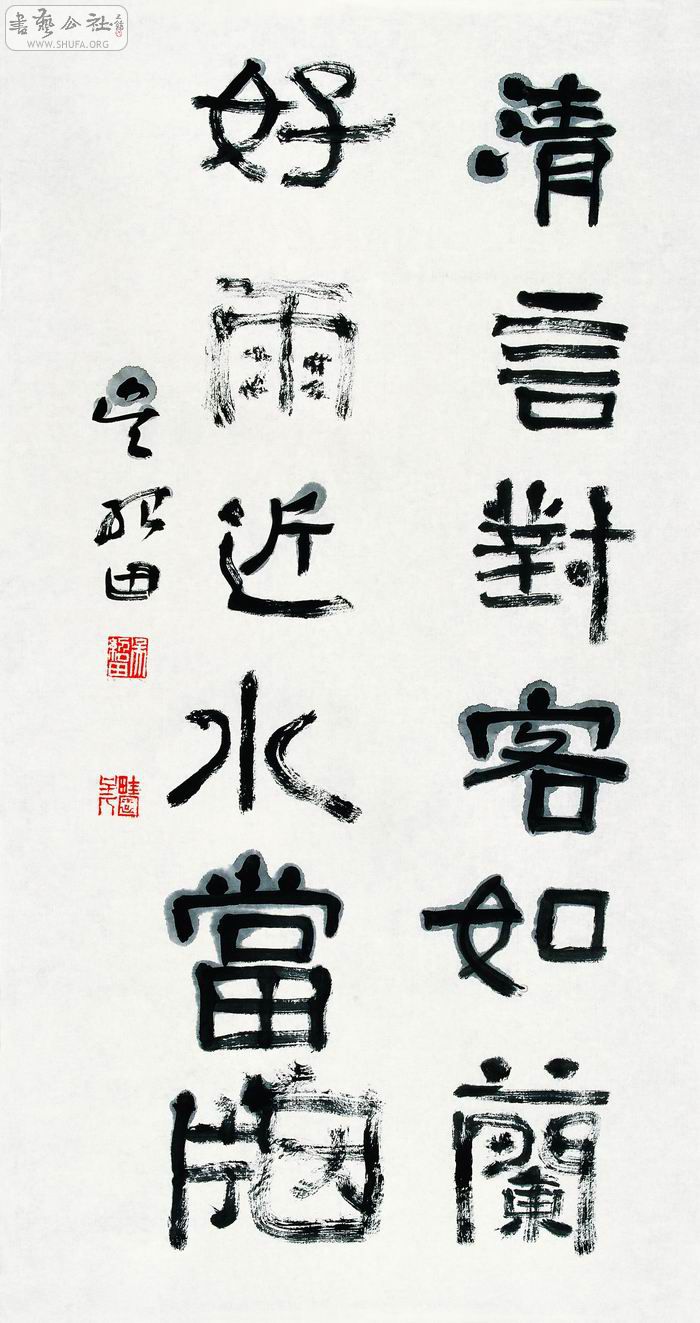 書藝公社
WWW.SHUFA.ORG
清言對客如蘭
好雨近水當牕
吴紹田